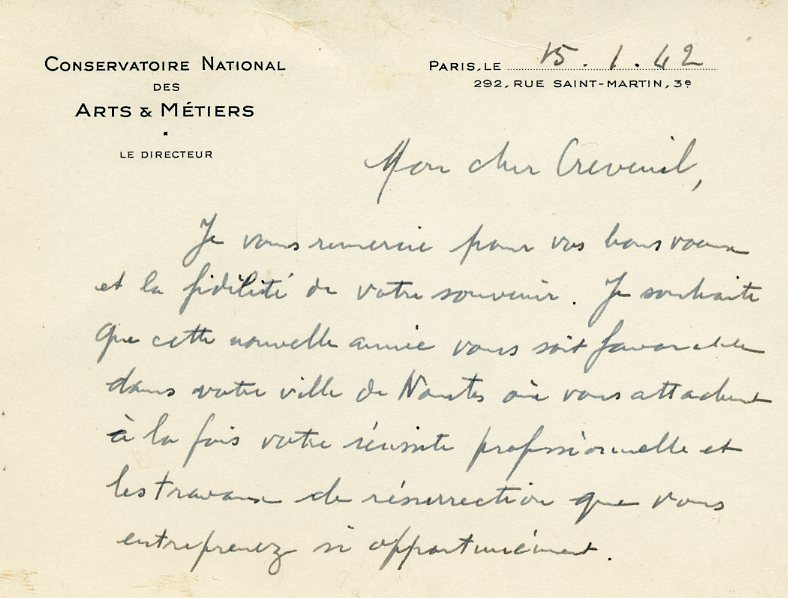 CONSERVATOIRE NATIONAL
DES
ARTS & MÉTIERS
LE DIRECTEUR
PARIS, LE 15.1.42
292, RUE SAINT-MARTIN, 3e
Mon cher Creveuil,
Je vous remercie pour vos bons voeux
et la fidélité de votre souvenir. Je souhaite
que cette nouvelle année vous soit favorable
dans votre ville de Nantes où vous attachent
à la fois votre réussite professionnelle et
les travaux de résurrection que vous
entreprenez si opportunément.